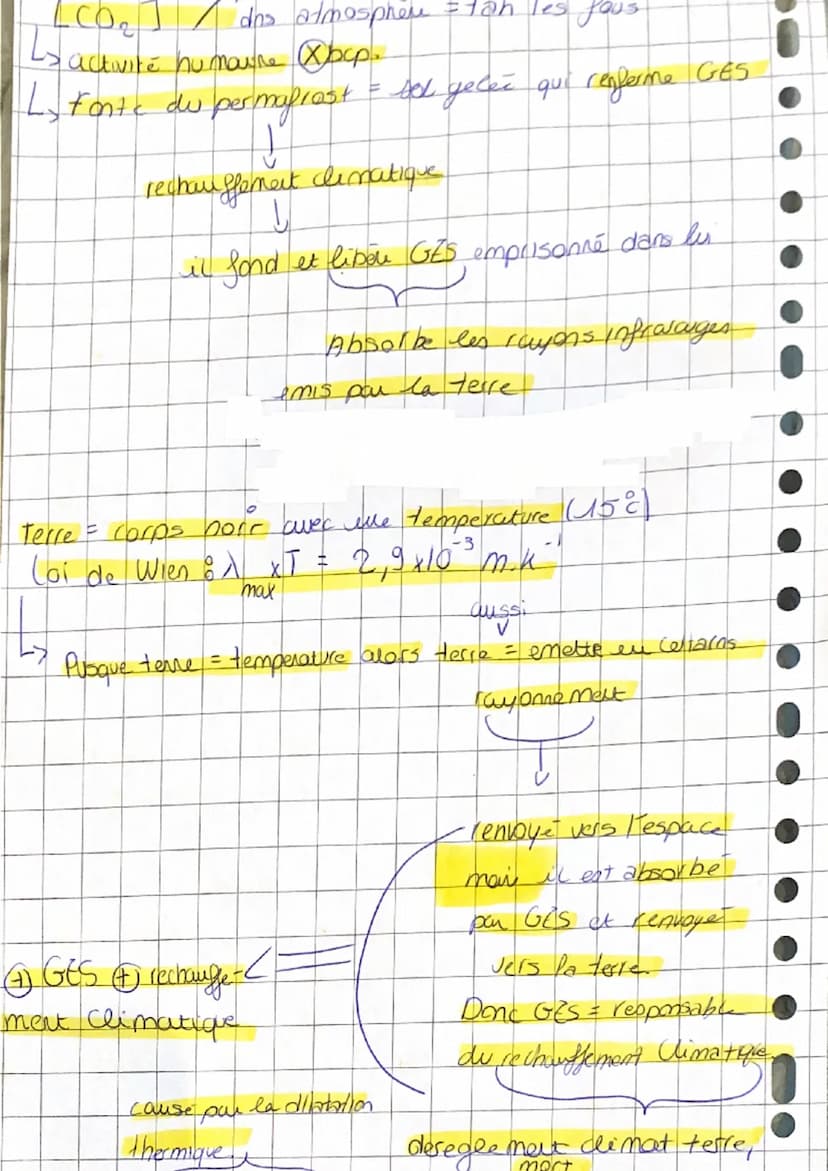 [CO₂] ↗ dns atmosphère = tah les fous
↳ activité humaine ⓧ bcp.
↳ fonte du permafrost = sol gelée qui renferme GES
↓
rechauffement climatique
↓
il fond et libère GES emprisonné dans lui
Absorbe les rayons infrarouges
émis par la terre
Terre = corps noir avec une temperature (15°C)
Loi de Wien : λmax x T = 2,9 x 10⁻³ m.k⁻¹
aussi
↳ Pusque terre = temperature alors terre = emette en certains
rayonnement
↓
renvoyé vers l'espace
mais il est absorbé
par GES et renvoyé
vers la terre.
⊕ GES ⊕ rechauffe-
ment climatique
Donc GES = responsable
du rechauffement Climatique
causé par la dilatation
thermique
deregleement climat terre,
mort